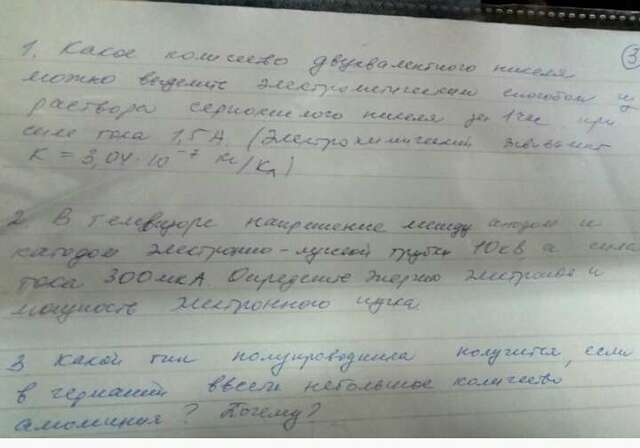 3
1. Какое количество двухвалентного никеля
можно выделить электролитическим способом из
раствора сернокислого никеля за 1 час при
силе тока 1,5 А. (Электрохимический эквивалент
К = 3,04 · 10⁻⁷ кг/Кл)
2 В телевизоре напряжение между анодом и
катодом электронно-лучевой трубки 10 кВ, а сила
тока 300 мкА. Определите энергию электронов и
мощность электронного пучка
3. Какой тип полупроводника получится, если
в германий ввести небольшое количество
алюминия? Почему?